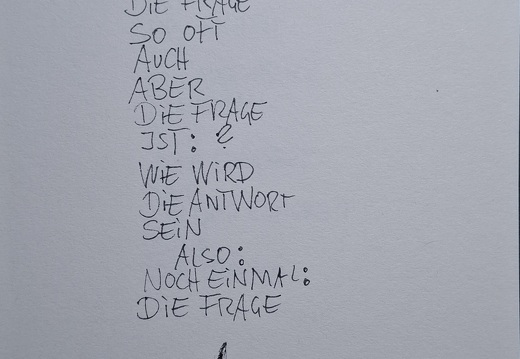 DIE FRAGE
SO OFT
AUCH
ABER
DIE FRAGE
IST: ?
WIE WIRD
DIE ANTWORT
SEIN
ALSO:
NOCH EINMAL:
DIE FRAGE